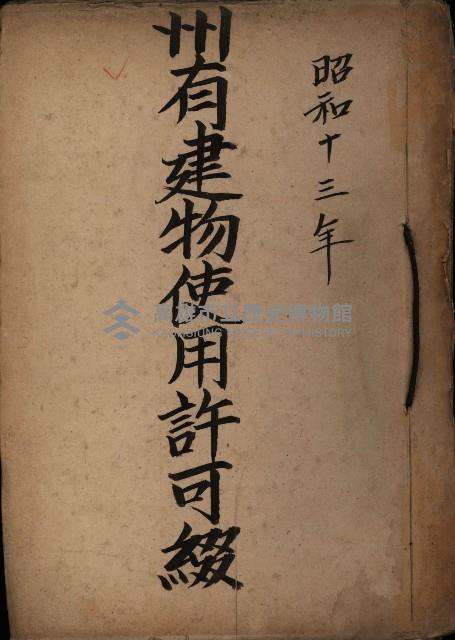 昭和十三年
州有建物使用許可綴
高雄市立歷史博物館
KAOHSIUNG MUSEUM OF HISTORY